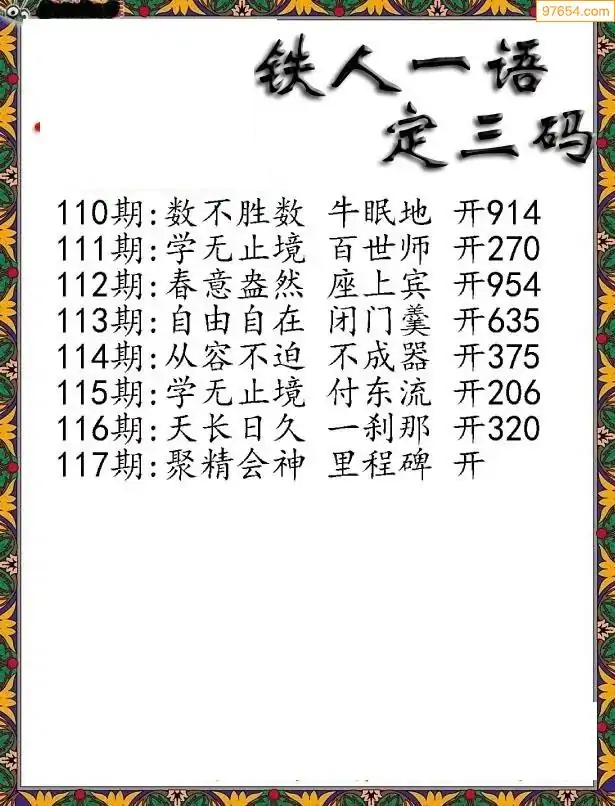 97654.com
铁人一语
定三码
110期:数不胜数 牛眠地 开914
111期:学无止境 百世师 开270
112期:春意盎然 座上宾 开954
113期:自由自在 闭门羹 开635
114期:从容不迫 不成器 开375
115期:学无止境 付东流 开206
116期:天长日久 一刹那 开320
117期:聚精会神 里程碑 开